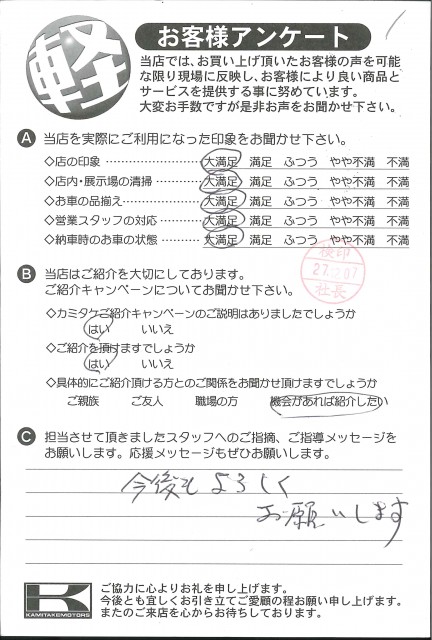 軽
お客様アンケート
当店では、お買い上げ頂いたお客様の声を可能
な限り現場に反映し、お客様により良い商品と
サービスを提供する事に努めています。
大変お手数ですが是非お声をお聞かせ下さい。
A 当店を実際にご利用になった印象をお聞かせ下さい。
◇店の印象 ………………… 大満足 満足 ふつう やや不満 不満
◇店内・展示場の清掃 ……… 大満足 満足 ふつう やや不満 不満
◇お車の品揃え …………… 大満足 満足 ふつう やや不満 不満
◇営業スタッフの対応 ……… 大満足 満足 ふつう やや不満 不満
◇納車時のお車の状態 ……… 大満足 満足 ふつう やや不満 不満
検印
社長
B 当店はご紹介を大切にしております。
ご紹介キャンペーンについてお聞かせ下さい。
◇カミタケご紹介キャンペーンのご説明はありましたでしょうか
はい いいえ
◇ご紹介を頂けますでしょうか
はい いいえ
◇具体的にご紹介頂ける方とのご関係をお聞かせ頂けますでしょうか
ご親族 ご友人 職場の方 機会があれば紹介したい
C 担当させて頂きましたスタッフへのご指摘、ご指導メッセージを
お願いします。応援メッセージもぜひお願いします。
今後もよろしく
お願いします
K
KAMITAKEMOTORS
ご協力に心よりお礼を申し上げます。
今後とも宜しくお引き立てご愛顧の程お願い申し上げます。
またのご来店を心からお待ちしております。